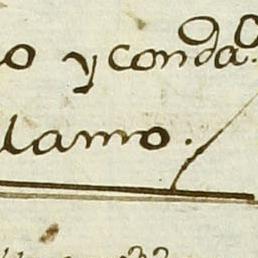 o y conda.
lamo.